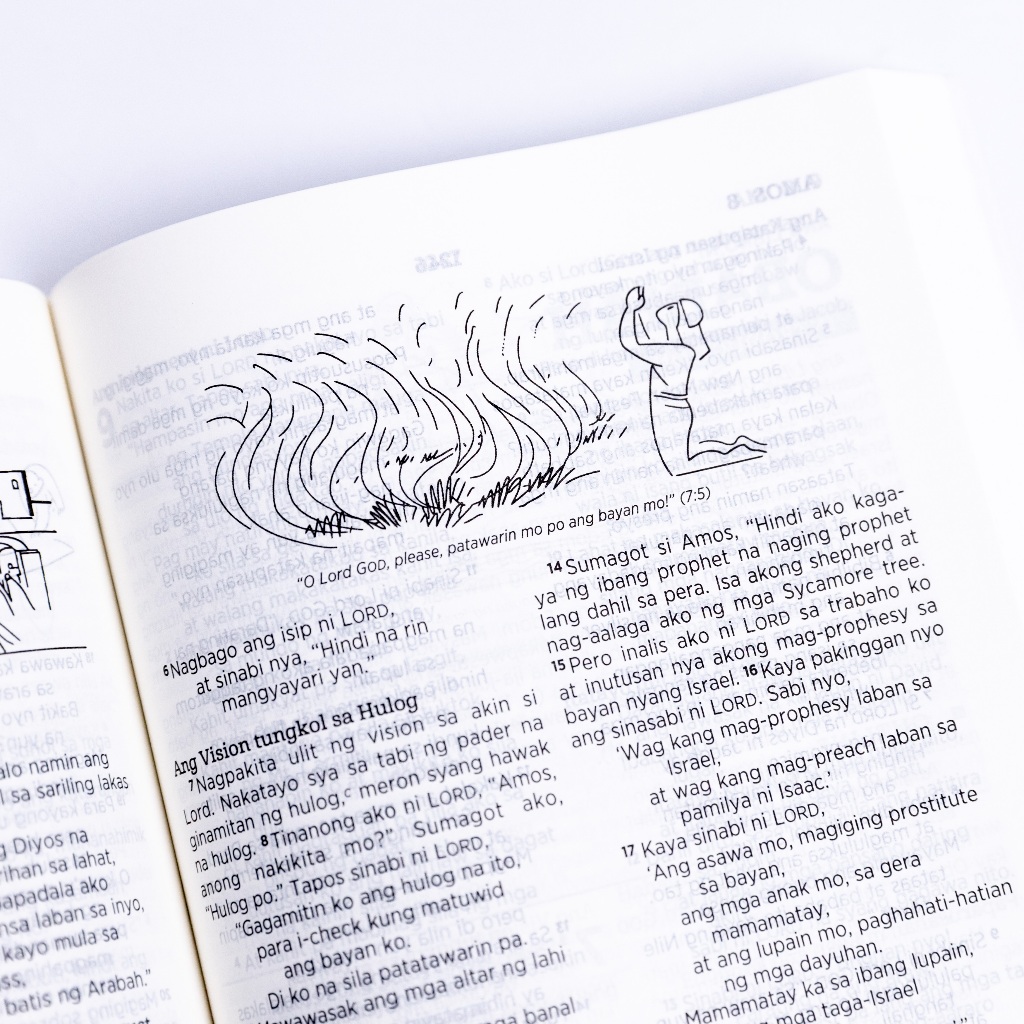 alo namin ang
l sa sariling lakas
g Diyos na
rihan sa lahat,
apadala ako
nsa laban sa inyo,
kayo mula sa
ss,
batis ng Arabah.”
“O Lord GOD, please, patawarin mo po ang bayan mo!” (7:5)
6 Nagbago ang isip ni LORD,
at sinabi nya, “Hindi na rin
mangyayari yan.”
Ang Vision tungkol sa Hulog
7 Nagpakita ulit ng vision sa akin si
Lord. Nakatayo sya sa tabi ng pader na
ginamitan ng hulog,c meron syang hawak
na hulog. 8 Tinanong ako ni LORD, “Amos,
anong nakikita mo?” Sumagot ako,
“Hulog po.” Tapos sinabi ni LORD,
“Gagamitin ko ang hulog na ito
para i-check kung matuwid
ang bayan ko.
Di ko na sila patatawarin pa.
Mawawasak ang mga altar ng lahi
banal
14 Sumagot si Amos, “Hindi ako kaga-
ya ng ibang prophet na naging prophet
lang dahil sa pera. Isa akong shepherd at
nag-aalaga ako ng mga Sycamore tree.
15 Pero inalis ako ni LORD sa trabaho ko
at inutusan nya akong mag-prophesy sa
bayan nyang Israel. 16 Kaya pakinggan nyo
ang sinasabi ni LORD. Sabi nyo,
‘Wag kang mag-prophesy laban sa
Israel,
at wag kang mag-preach laban sa
pamilya ni Isaac.’
17 Kaya sinabi ni LORD,
‘Ang asawa mo, magiging prostitute
sa bayan,
ang mga anak mo, sa gera
mamamatay,
at ang lupain mo, paghahati-hatian
ng mga dayuhan.
Mamamatay ka sa ibang lupain,
mga taga-Israel